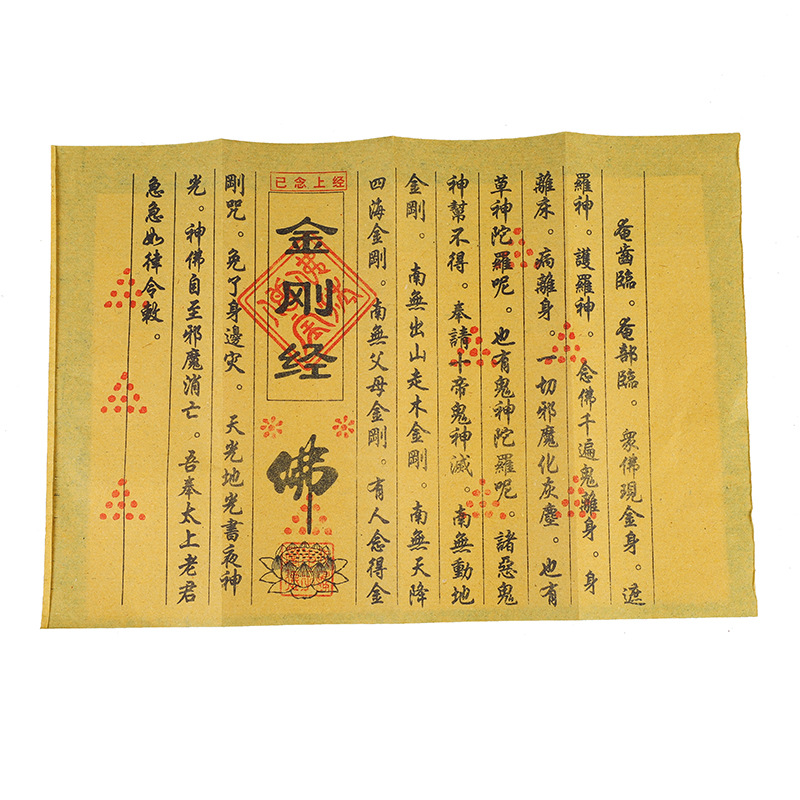 奄齒臨。奄部臨。衆佛現金身。遮
羅神。護羅神。念佛千遍鬼離身。身
離床。病離身。一切邪魔化灰塵。也有
草神陀羅呢。也有鬼神陀羅呢。諸惡鬼
神幫不得。奉請十帝鬼神滅 南無動地
金剛。南無出山走木金剛。南無天降
四海金剛。南無父母金剛。有人念得金
已念上经
金刚经
佛
剛咒。免了身邊灾。天光地光書夜神
光。神佛自至邪魔消亡。吾奉太上老君
急急如律令敕。